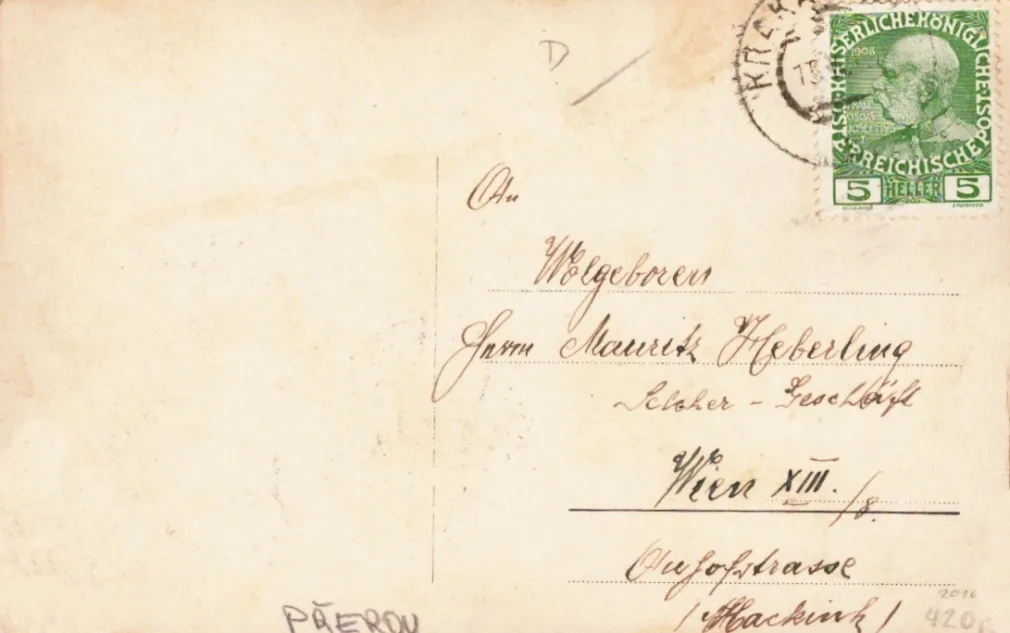 D /
KRAK
1908
KAISERLICHEKÖNIGLICHE ÖSTERREICHISCHE POST
FRAN
CISCVS
IOSEFVS
I
5 HELLER 5
An
Wolgeboren
Herrn Mauritz Heberling
Selcher - Geschäft
Wien XIII. /8.
Auhofstrasse
PŘEROV
2010
420,-